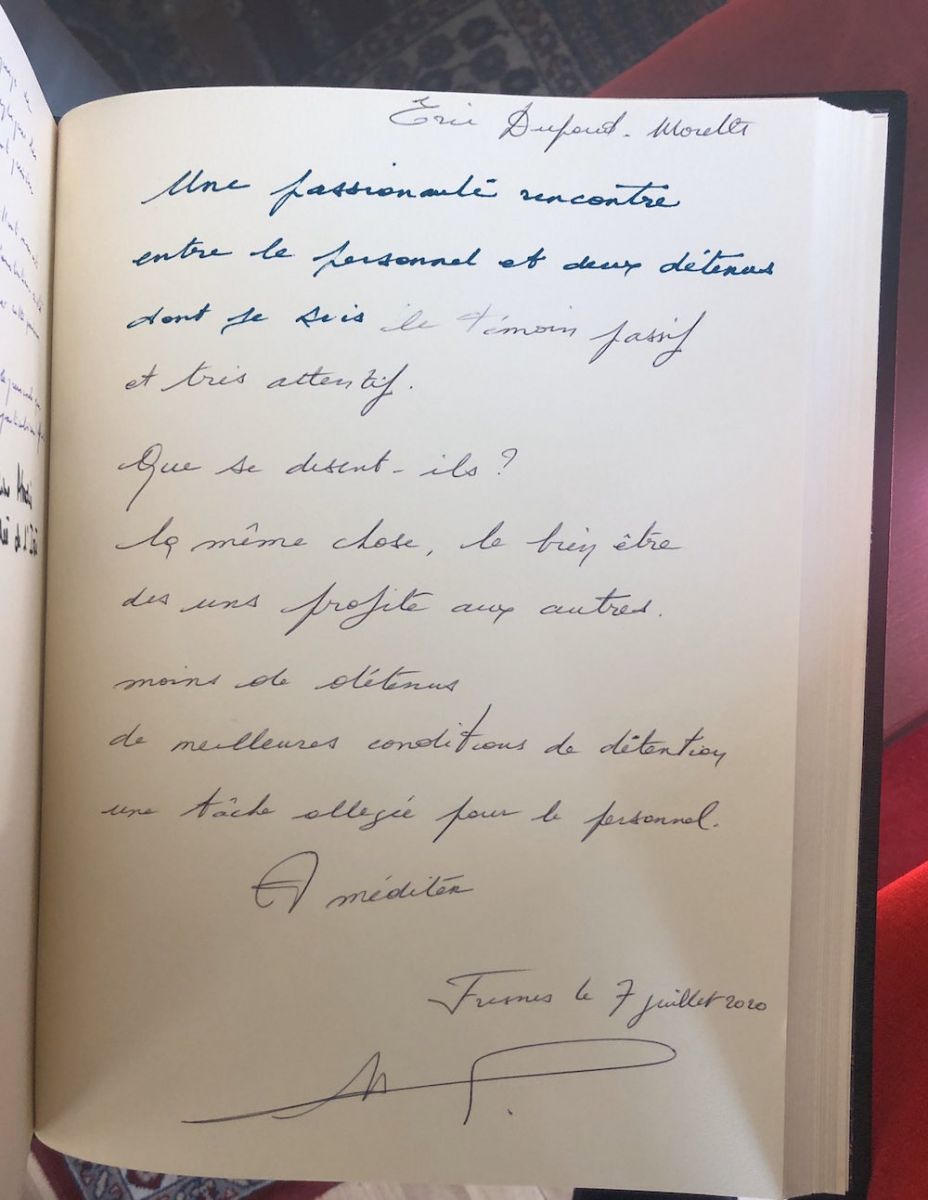 Eric Dupond-Moretti
Une passionanté rencontre
entre le personnel et deux détenus
dont je suis le témoin passif
et très attentif.
Que se disent-ils ?
la même chose, le bien être
des uns profite aux autres.
moins de détenus
de meilleures conditions de détention
une tâche allegée pour le personnel.
A méditer
Fresnes le 7 juillet 2020